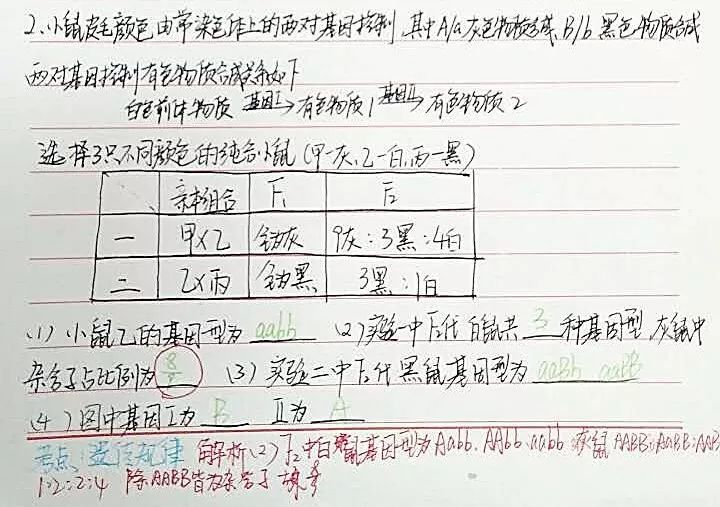 2.小鼠皮毛颜色由常染色体上的两对基因控制,其中A/a灰色物质合成,B/b黑色物质合成
两对基因控制有色物质合成关系如下
白色前体物质 基因Ⅰ→ 有色物质1 基因Ⅱ→ 有色物质2
选择3只不同颜色的纯合小鼠(甲-灰,乙-白,丙-黑)
亲本组合 F₁ F₂
一 甲×乙 全为灰 9灰:3黑:4白
二 乙×丙 全为黑 3黑:1白
(1)小鼠乙的基因型为 aabb (2)实验一中F₂代白鼠共 3 种基因型 灰鼠中
杂合子占比例为 8/9 (3)实验二中F₂代黑鼠基因型为 aaBb aaBB
(4)图中基因Ⅰ为 B Ⅱ为 A
考点:遗传规律 解析(2)F₂中白鼠基因型为Aabb、AAbb、aabb 灰鼠AABB:AaBB:AAB
1:2:2:4 除AABB皆为杂合子